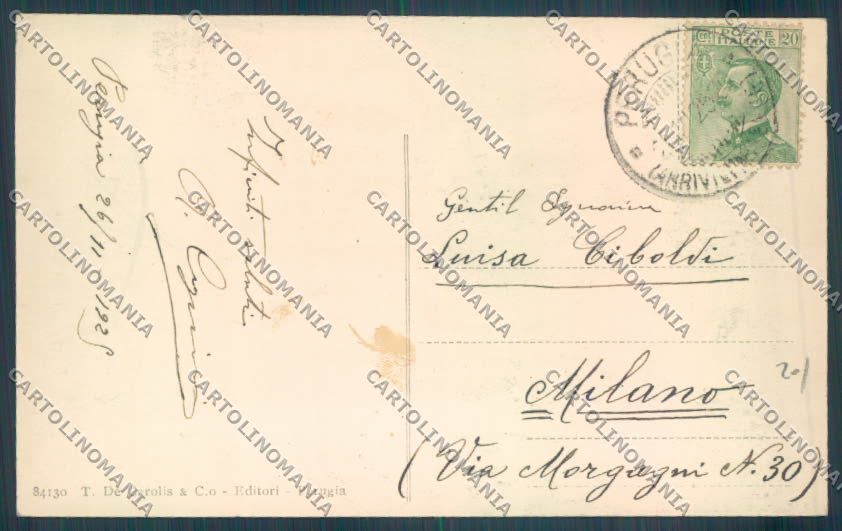 Perugia 26/11 1925
Infiniti saluti
84130 T. De Carolis & C.o - Editori - Perugia
POSTE ITALIANE 20
PERUGIA
(ARRIVI E
Gentil Signorina
Luisa Ciboldi
Milano
(Via Morgagni N. 30)
20/
CARTOLINOMANIA